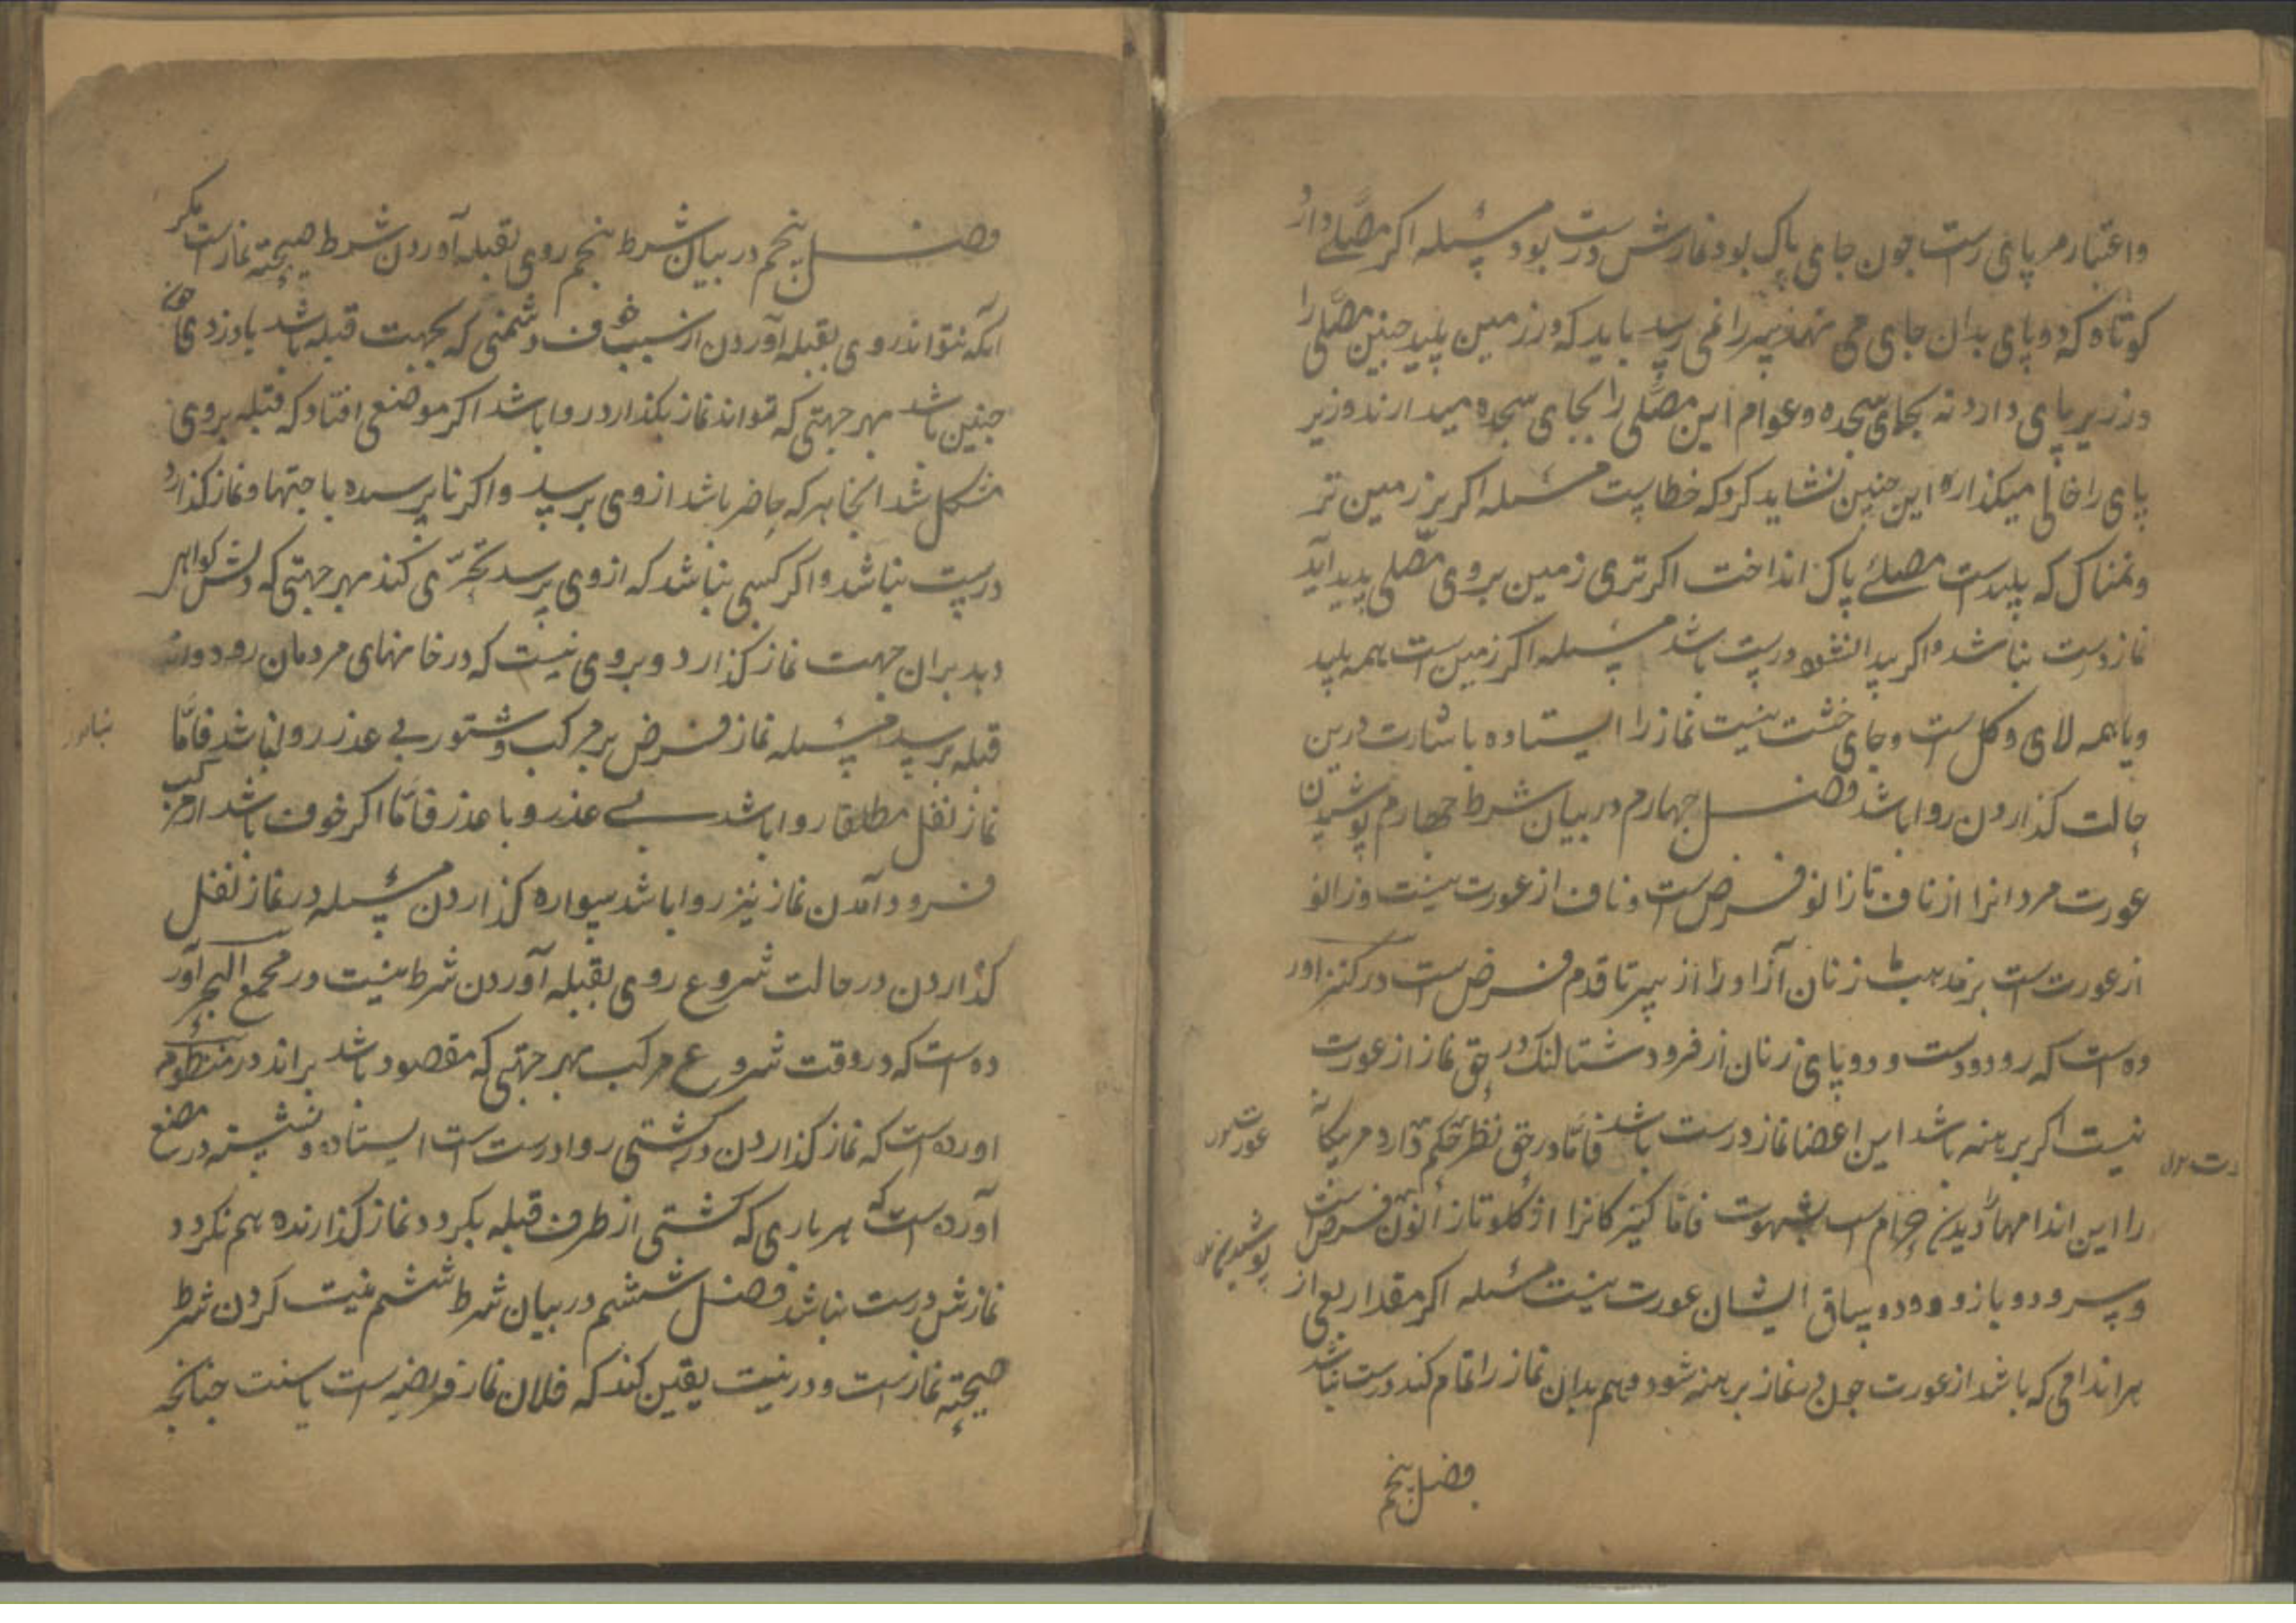 واعتبار مر پای راست جون جای پاک بود نمازش درست بود مسئله اکر مصلے دارد
کوتاه که دو پای بدان جای می نهد سر را نمی رسد باید که در زمین پلید جنین مصلی را
در زیر پای دارد نه بجای سجده و عوام این مصلی را بجای سجده میدارند و زیر
پای را خالی میکذارند این جنین نشاید کرد که خطاست مسئله اکر بر زمین تر
و نمناک که پلیدست مصلئے پاک انداخت اکر تری زمین بروی مصلی پدید آید
نماز درست نباشد و اکر پیدا نشود درست باشد مسئله اکر زمین است همه پلید
و یا همه لای و کل است و جای خشت نیست نماز را ایستاده باشارت درین
حالت کذاردن روا باشد فصل جهارم در بیان شرط جهارم پوشیدن
عورت مردانرا از ناف تا زانو فرض است و ناف از عورت نیست و زانو
از عورت است بر مذهب ما زنان آزاد را از سر تا قدم فرض است در کنز آور
ده است که رو و دو دست و دو پای زنان از فرود شتالنک در حق نماز از عورت
نیست اکر برهنه باشد این اعضا نماز درست باشد فامّا در حق نظر حکم دارد مر بیکانه
را این اندامها دیدن حرام است بشهوت فامّا کنیزکانرا از کلو تا زانو فرض است
و سر و دو بازو و دو ساق ایشان عورت نیست مسئله اکر مقدار ربعی از
هر اندامی که باشد از عورت جون در نماز برهنه شود و هم بدان نماز را تمام کند درست نباشد
فصل پنجم
فصل پنجم در بیان شرط پنجم روی بقبله آوردن شرط صحیحته نماز است مکر
آنکه نتواند روی بقبله آوردن از سبب خوف دشمنی که بجهت قبله باشد یا دزدی
جنین باشد بهر جهتی که تواند نماز بکذارد روا باشد اکر موضعی افتاد که قبله بروی
مشکل شد آنجا هر که حاضر باشد از وی بپرسد و اکر نا پرسیده باجتهاد نماز کذارد
درست نباشد و اکر کسی نباشد که از وی پرسد تحرّی کند بهر جهتی که دلش کواهی
دهد بران جهت نماز کذارد و بروی نیست که در خانهای مردمان رود و از
قبله پرسد مسئله نماز فرض بر مرکب و ستور بے عذر روا نباشد فامّا
نماز نفل مطلقا روا باشد بے عذر و با عذر فامّا اکر خوف باشد از مرکب
فرود آمدن نماز نیز روا باشد سواره کذاردن مسئله در نماز نفل
کذاردن در حالت شروع روی بقبله آوردن شرط نیست در مجمع البحر آور
ده است که در وقت شروع مرکب بهر جهتی که مقصود باشد براند در منظوم
اورده است که نماز کذاردن در کشتی روا درست است ایستاده و نشسته در
آورده است که هر باری که کشتی از طرف قبله بکردد نماز کذارنده هم نکردد
نمازش درست نباشد فصل ششم در بیان شرط ششم نیت کردن شرط
صحیحته نماز است و در نیت یقین کند که فلان نماز فریضه است یا سنت جنانجه